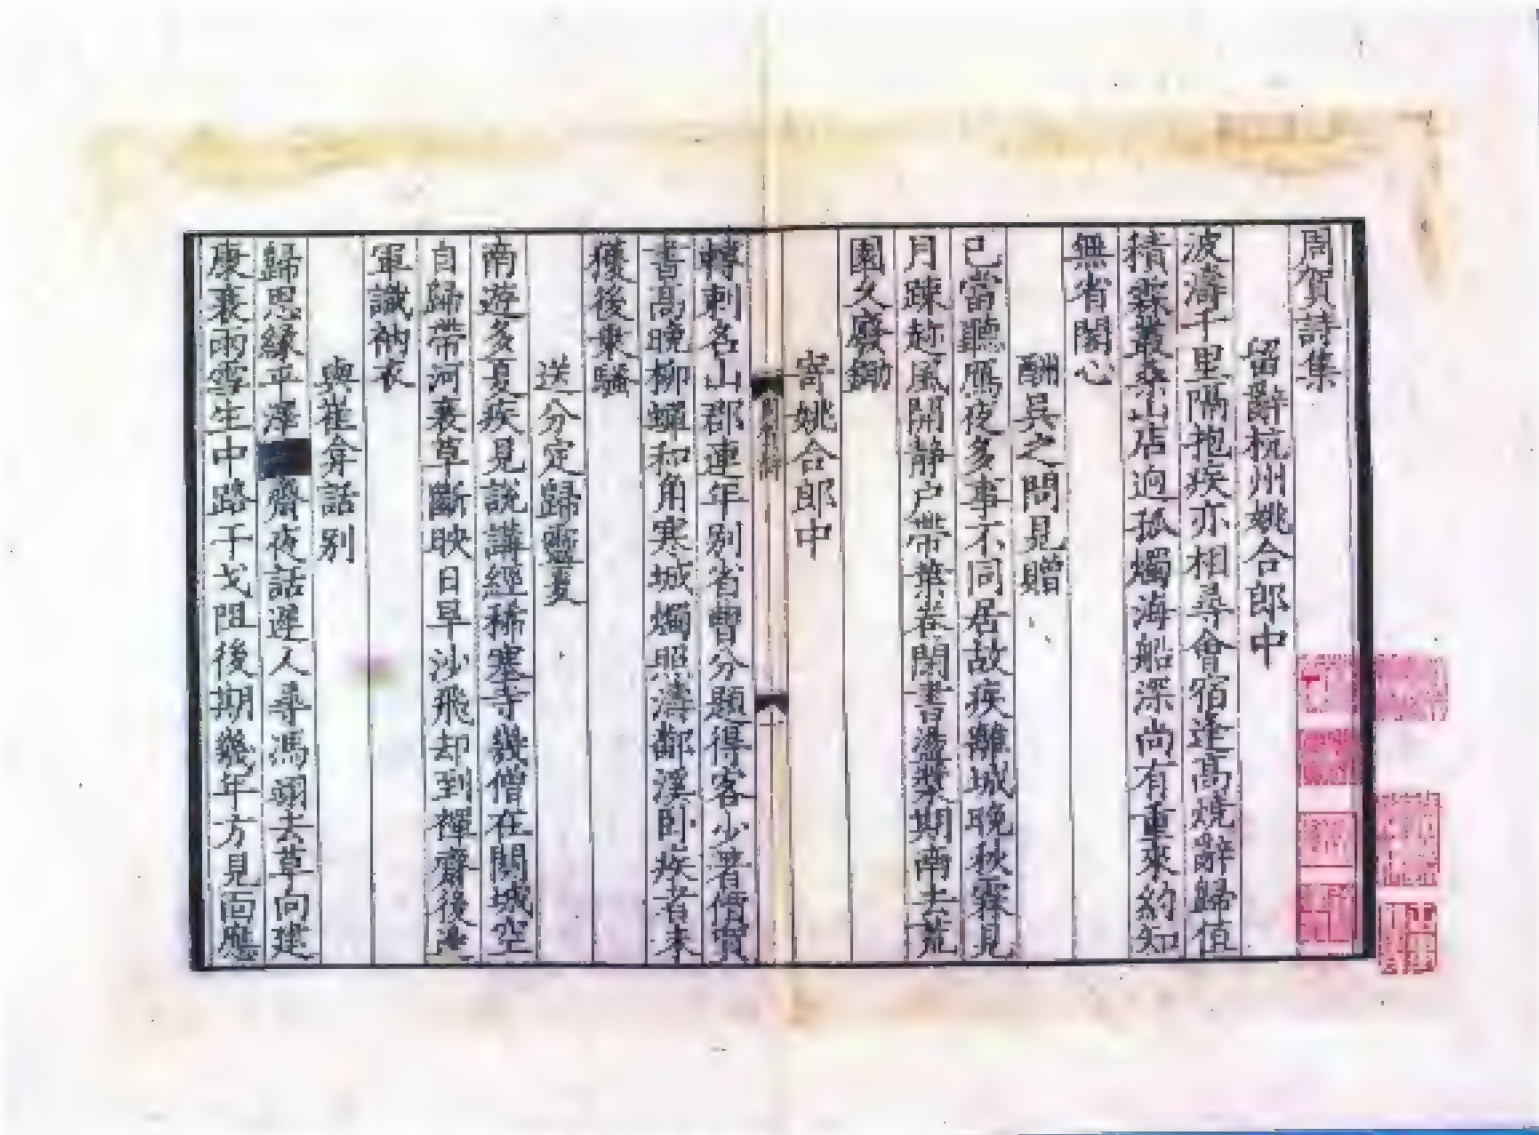 周賀詩集
留辭杭州姚合郎中
波濤千里隔抱疾亦相尋會宿逢高燒辭歸值
積霖叢桑山店迥孤燭海船深尚有重來約知
無省閣心
酬吳之問見贈
已當聽鴈夜多事不同居故疾離城晚秋霖見
月疎趁風開静户帶葉卷閑書盪槳期南去荒
園久廢鋤
寄姚合郎中
轉刺名山郡連年別省曹分題得客少著價買
書高晚柳蟬和角寒城燭照濤鄰溪卧疾者未
獲後乗騷
送分定歸靈夏
南遊多夏疾見說講經稀塞寺幾僧在關城空
自歸帶河衰草斷映日旱沙飛却到禪齋後邊
軍識衲衣
與崔弇話別
歸思緣平澤齋夜話遲人尋馮翊去草向建
康衰雨雪生中路干戈阻後期幾年方見面應